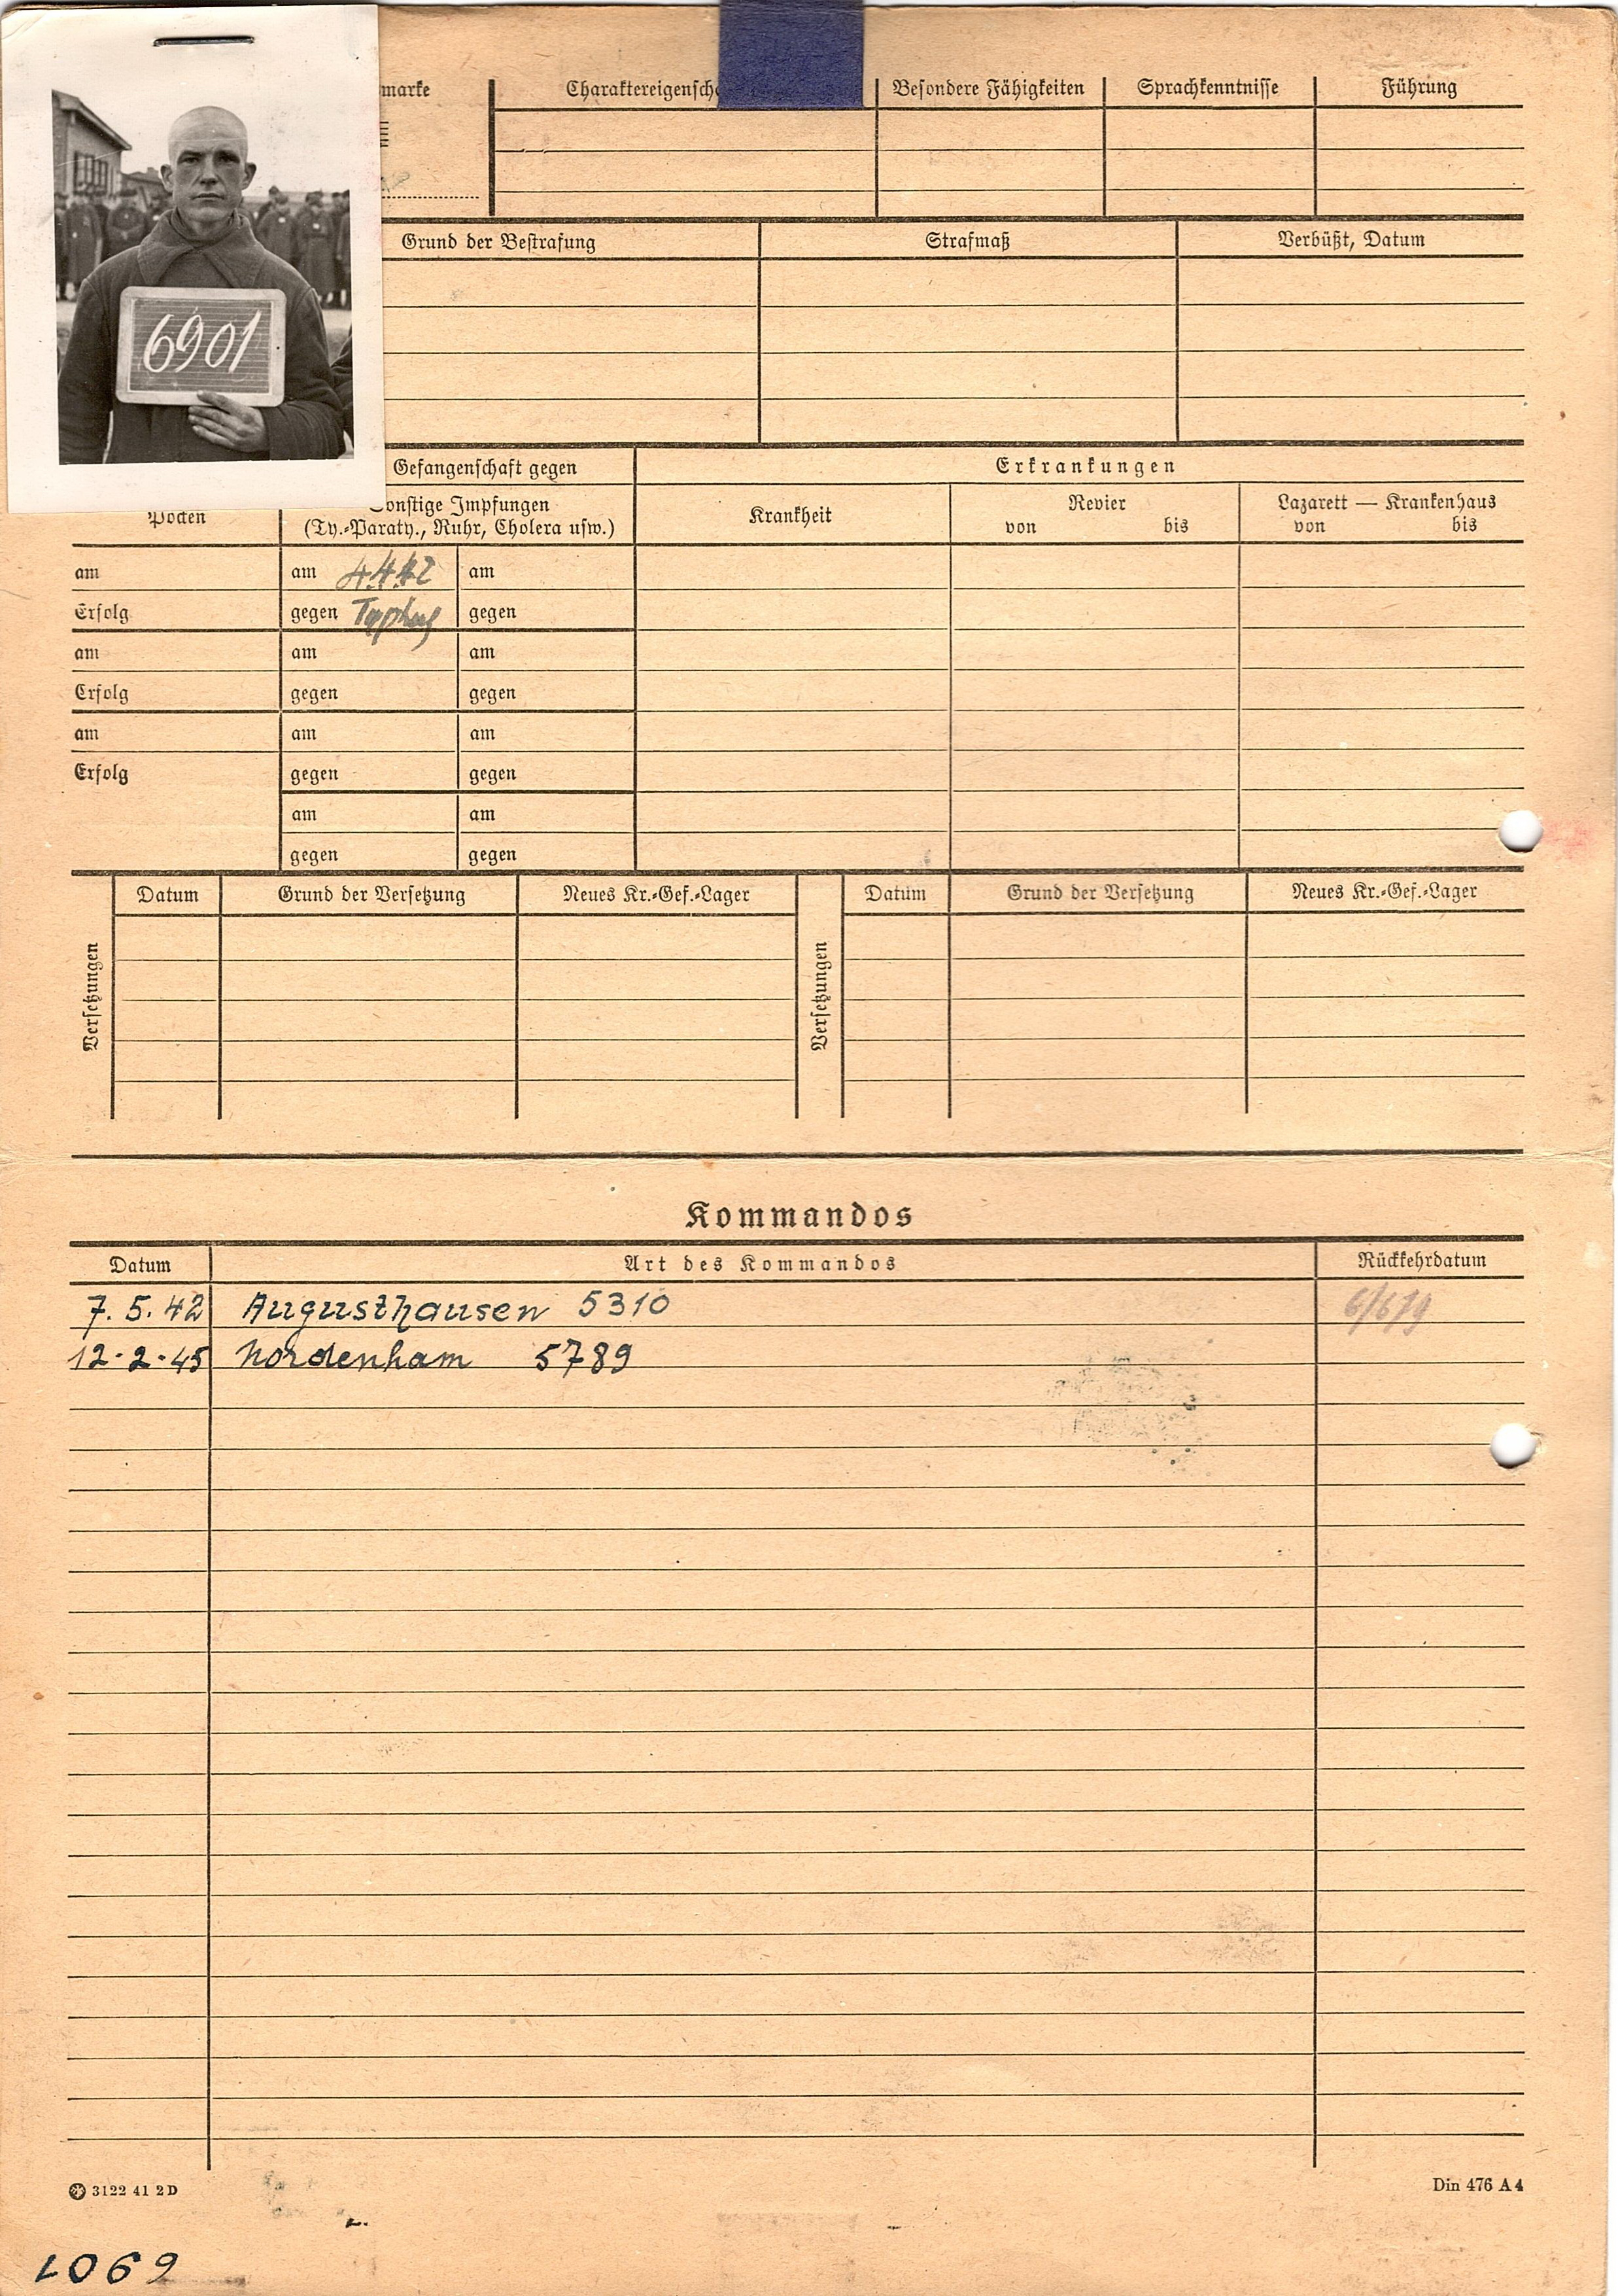 marke Charaktereigensch Besondere Fähigkeiten Sprachkenntnisse Führung
Grund der Bestrafung Strafmaß Verbüßt, Datum
6901
Gefangenschaft gegen Erkrankungen
Pocken
Sonstige Impfungen
(Ty.-Paraty., Ruhr, Cholera usw.)
Krankheit
Revier
von bis
Lazarett — Krankenhaus
von bis
am am 4.4.42 am
Erfolg gegen Typhus gegen
am am am
Erfolg gegen gegen
am am am
Erfolg gegen gegen
am am
gegen gegen
Versetzungen Datum Grund der Versetzung Neues Kr.-Gef.-Lager Versetzungen Datum Grund der Versetzung Neues Kr.-Gef.-Lager
Kommandos
Datum Art des Kommandos Rückkehrdatum
7.5.42 Augusthausen 5310
12.2.45 Nordenham 5789
3122 41 2D Din 476 A4
6901